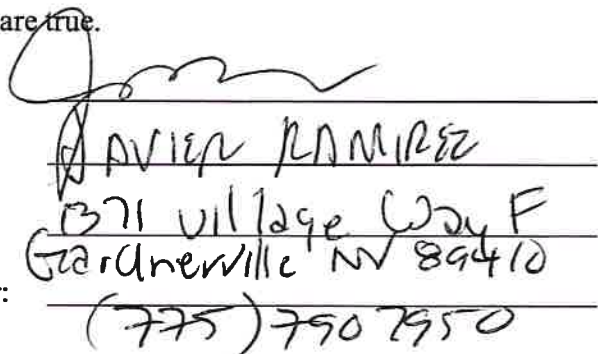 are true.
JAVIER RAMIREZ
1371 Village Way F
Gardnerville NV 89410
:
(775) 790 7950